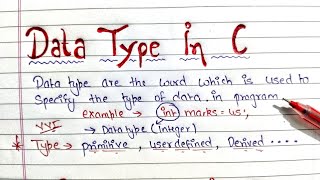 Data Type in C
Data type are the word which is used to
specify the type of data in program
example → int marks = 45;
VVI → Datatype (integer)
* Type → primitive, userdefined, Derived ....